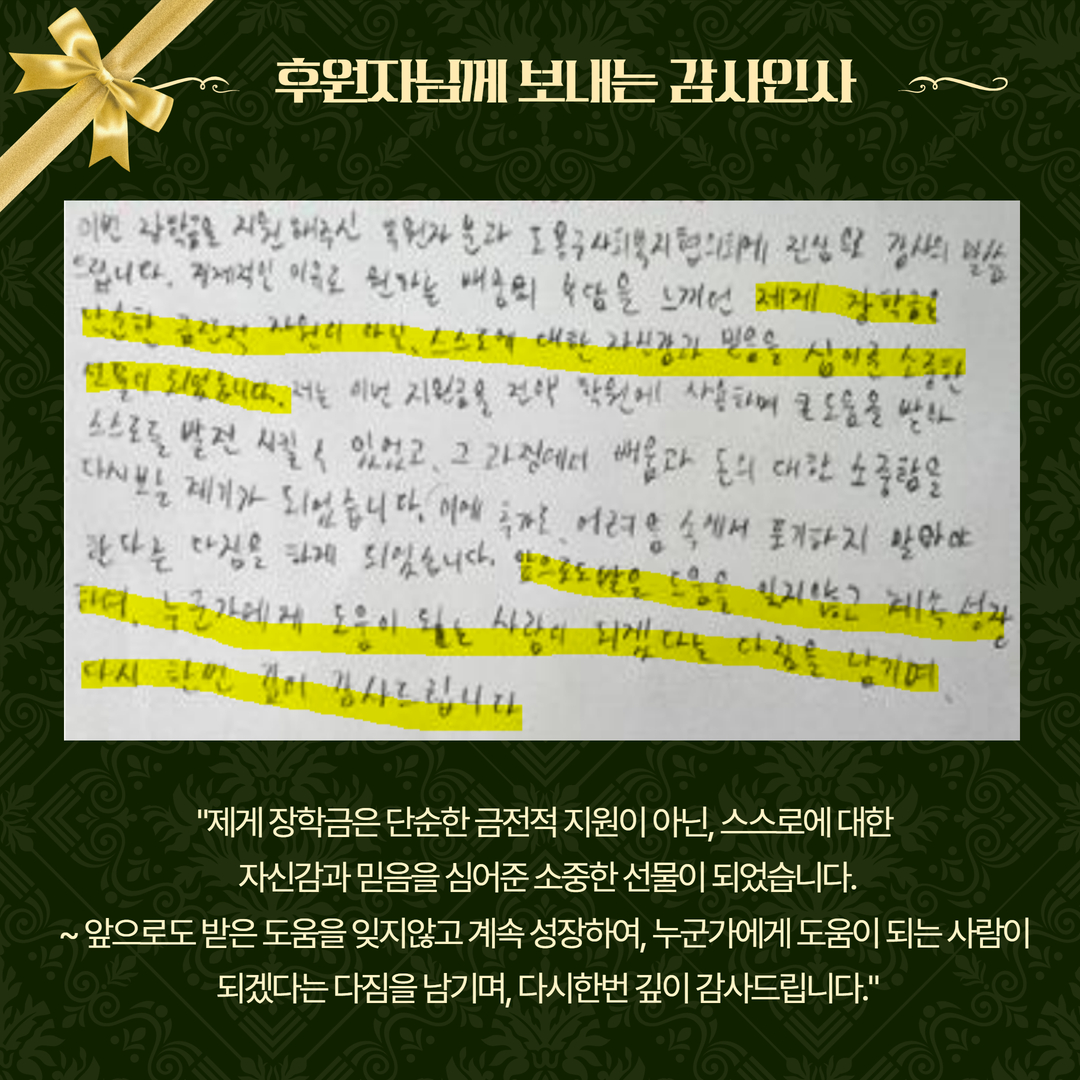 후원자님께 보내는 감사인사
이번 장학금을 지원해주신 후원자 분과 도봉구사회복지협의회에 진심으로 감사의 말씀
드립니다. 경제적인 이유로 원하는 배움의 부담을 느끼던 제게 장학금은
단순한 금전적 지원이 아닌, 스스로에 대한 자신감과 믿음을 심어준 소중한
선물이 되었습니다. 저는 이번 지원금을 전액 학원에 사용하며 큰도움을 받아
스스로를 발전 시킬 수 있었고, 그 과정에서 배움과 돈의 대한 소중함을
다시보는 계기가 되었습니다. 이에 추가로, 어려움 속에서 포기하지 않아야
한다는 다짐을 하게 되었습니다. 앞으로도받은 도움을 잊지않고 계속 성장
하여, 누군가에게 도움이 되는 사람이 되겠다는 다짐을 남기며,
다시 한번 깊이 감사드립니다
"제게 장학금은 단순한 금전적 지원이 아닌, 스스로에 대한
자신감과 믿음을 심어준 소중한 선물이 되었습니다.
~ 앞으로도 받은 도움을 잊지않고 계속 성장하여, 누군가에게 도움이 되는 사람이
되겠다는 다짐을 남기며, 다시한번 깊이 감사드립니다."